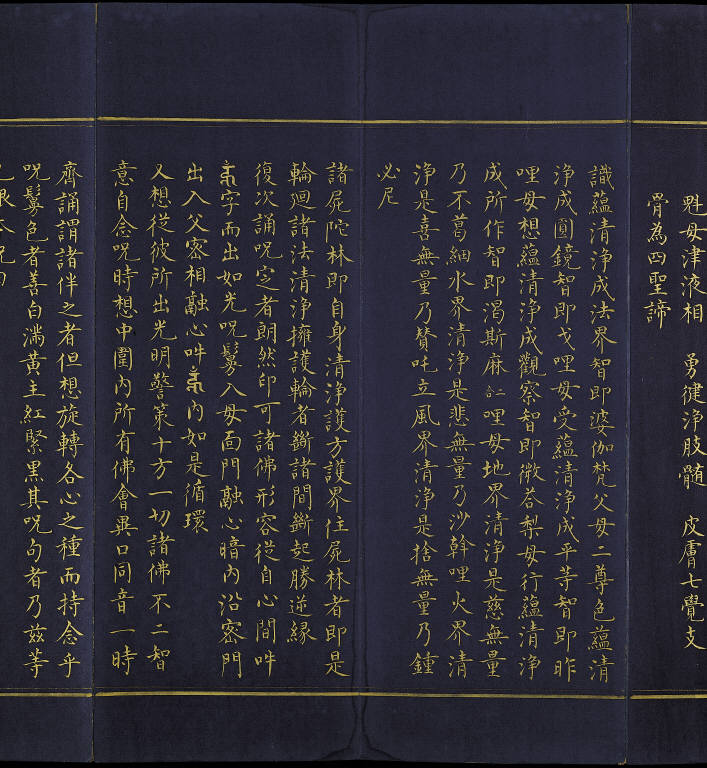 魁母津液相　勇健淨肢髓　皮膚七覺支
骨為四聖諦
識蘊清淨成法界智即婆伽梵父母二尊色蘊清
淨成圓鏡智即戈哩母受蘊清淨成平等智即昨
哩母想蘊清淨成觀察智即微荅梨母行蘊清淨
成所作智即渴斯麻二合哩母地界清淨是慈無量
乃不葛細水界清淨是悲無量乃沙斡哩火界清
淨是喜無量乃賛吒立風界清淨是捨無量乃鍾
必尼
諸屍陀林即自身清淨護方護界住屍林者即是
輪廻諸法清淨擁護輪者斷諸間斷起勝逆緣
復次誦呪定者朗然印可諸佛形容從自心間吽
字而出如光呪鬘入母面門融心暗內沿密門
出入父密相融心吽內如是循環
又想從彼所出光明警策十方一切諸佛不二智
意自念呪時想中圍內所有佛會異口同音一時
齊誦謂諸伴之者但想旋轉各心之種而持念乎
呪鬘色者善白濡黃主紅緊黑其呪句者乃茲等